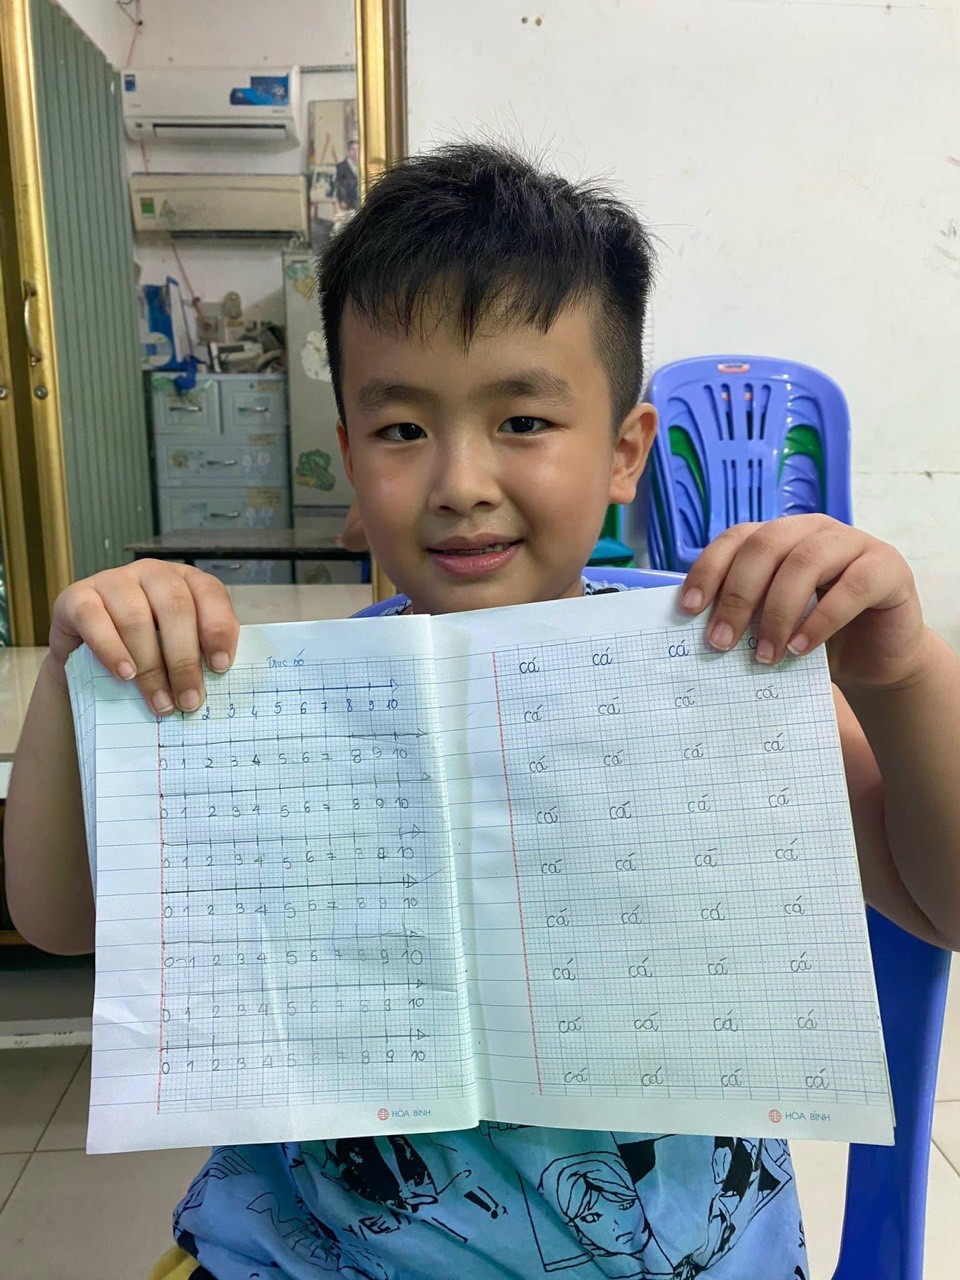 Trục số
1 2 3 4 5 6 7 8 9 10
0 1 2 3 4 5 6 7 8 9 10
0 1 2 3 4 5 6 7 8 9 10
0 1 2 3 4 5 6 7 8 9 10
0 1 2 3 4 5 6 7 8 9 10
0 1 2 3 4 5 6 7 8 9 10
0 1 2 3 4 5 6 7 8 9 10
0 1 2 3 4 5 6 7 8 9 10
HÒA BÌNH
cá cá cá
cá cá cá cá
cá cá cá cá
cá cá cá cá
cá cá cá cá
cá cá cá cá
cá cá cá cá
cá cá cá cá
cá cá cá cá
HÒA BÌNH